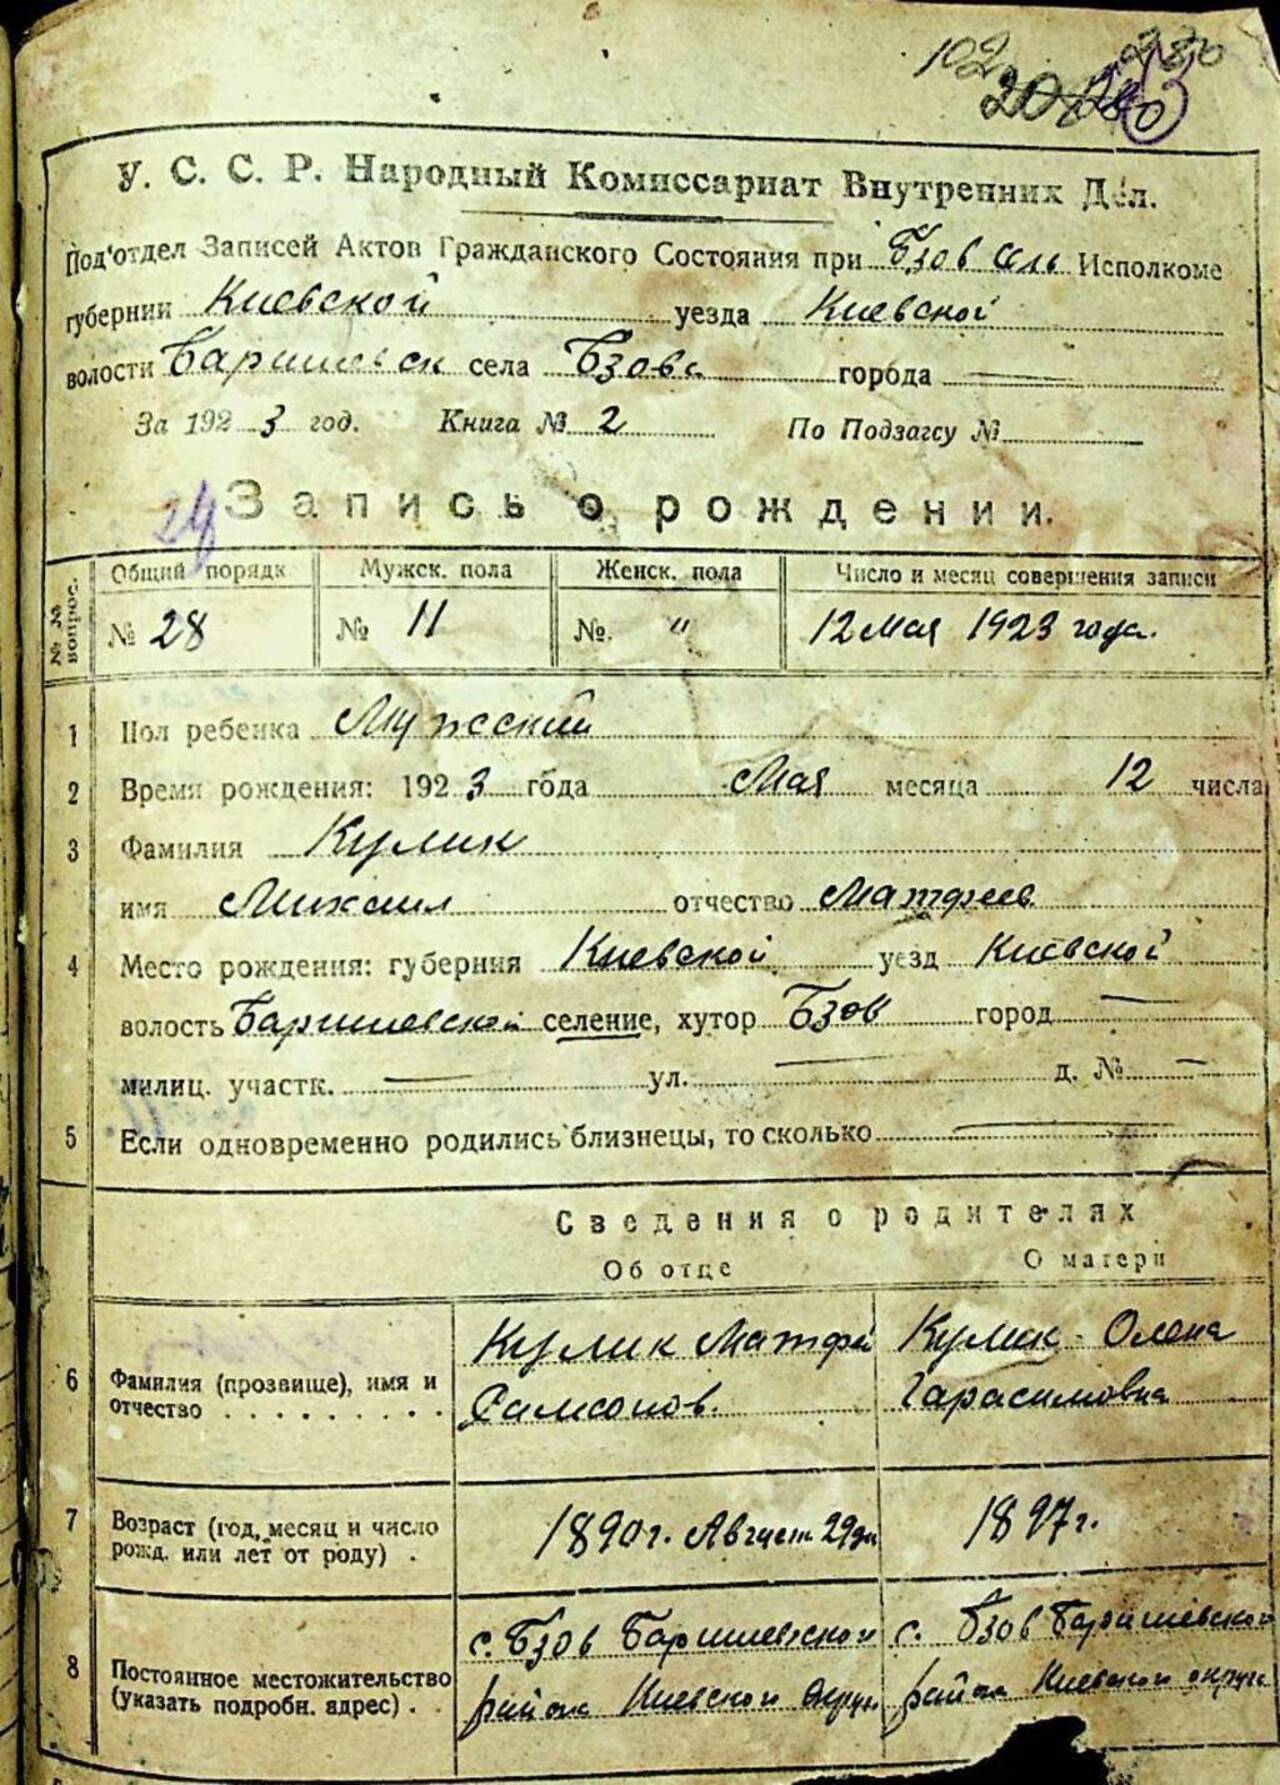 102 280
У. С. С. Р. Народный Комиссариат Внутренних Дел.
Под'отдел Записей Актов Гражданского Состояния при Бзов Сель Исполкоме
губернии Киевской уезда Киевской
волости Баришевск села Бзова города —
За 1923 год. Книга № 2 По Подзагсу №
28
Запись о рождении.
№ № вопрос. Общий порядк Мужск. пола Женск. пола Число и месяц совершения записи
№ 28 № 11 №. " 12 Мая 1923 года.
1 Пол ребенка Мужский
2 Время рождения: 1923 года Мая месяца 12 числа
3 Фамилия Кулик
имя Михаил отчество Матфеев
4 Место рождения: губерния Киевской уезд Киевской
волость Баришевской селение, хутор Бзов город —
милиц. участк. — ул. — д. № —
5 Если одновременно родились близнецы, то сколько —
Сведения о родителях
Об отце О матери
6 Фамилия (прозвище), имя и отчество . . . . . . . . . Кулик Матфей Самсонов. Кулик Олена Гарасимовна
7 Возраст (год, месяц и число рожд. или лет от роду) . 1890 г. Август 29 дн 1897 г.
8 Постоянное местожительство (указать подробн. адрес) . . с. Бзов Баришевской района Киевской округи с. Бзов Баришевской района Киевской округи